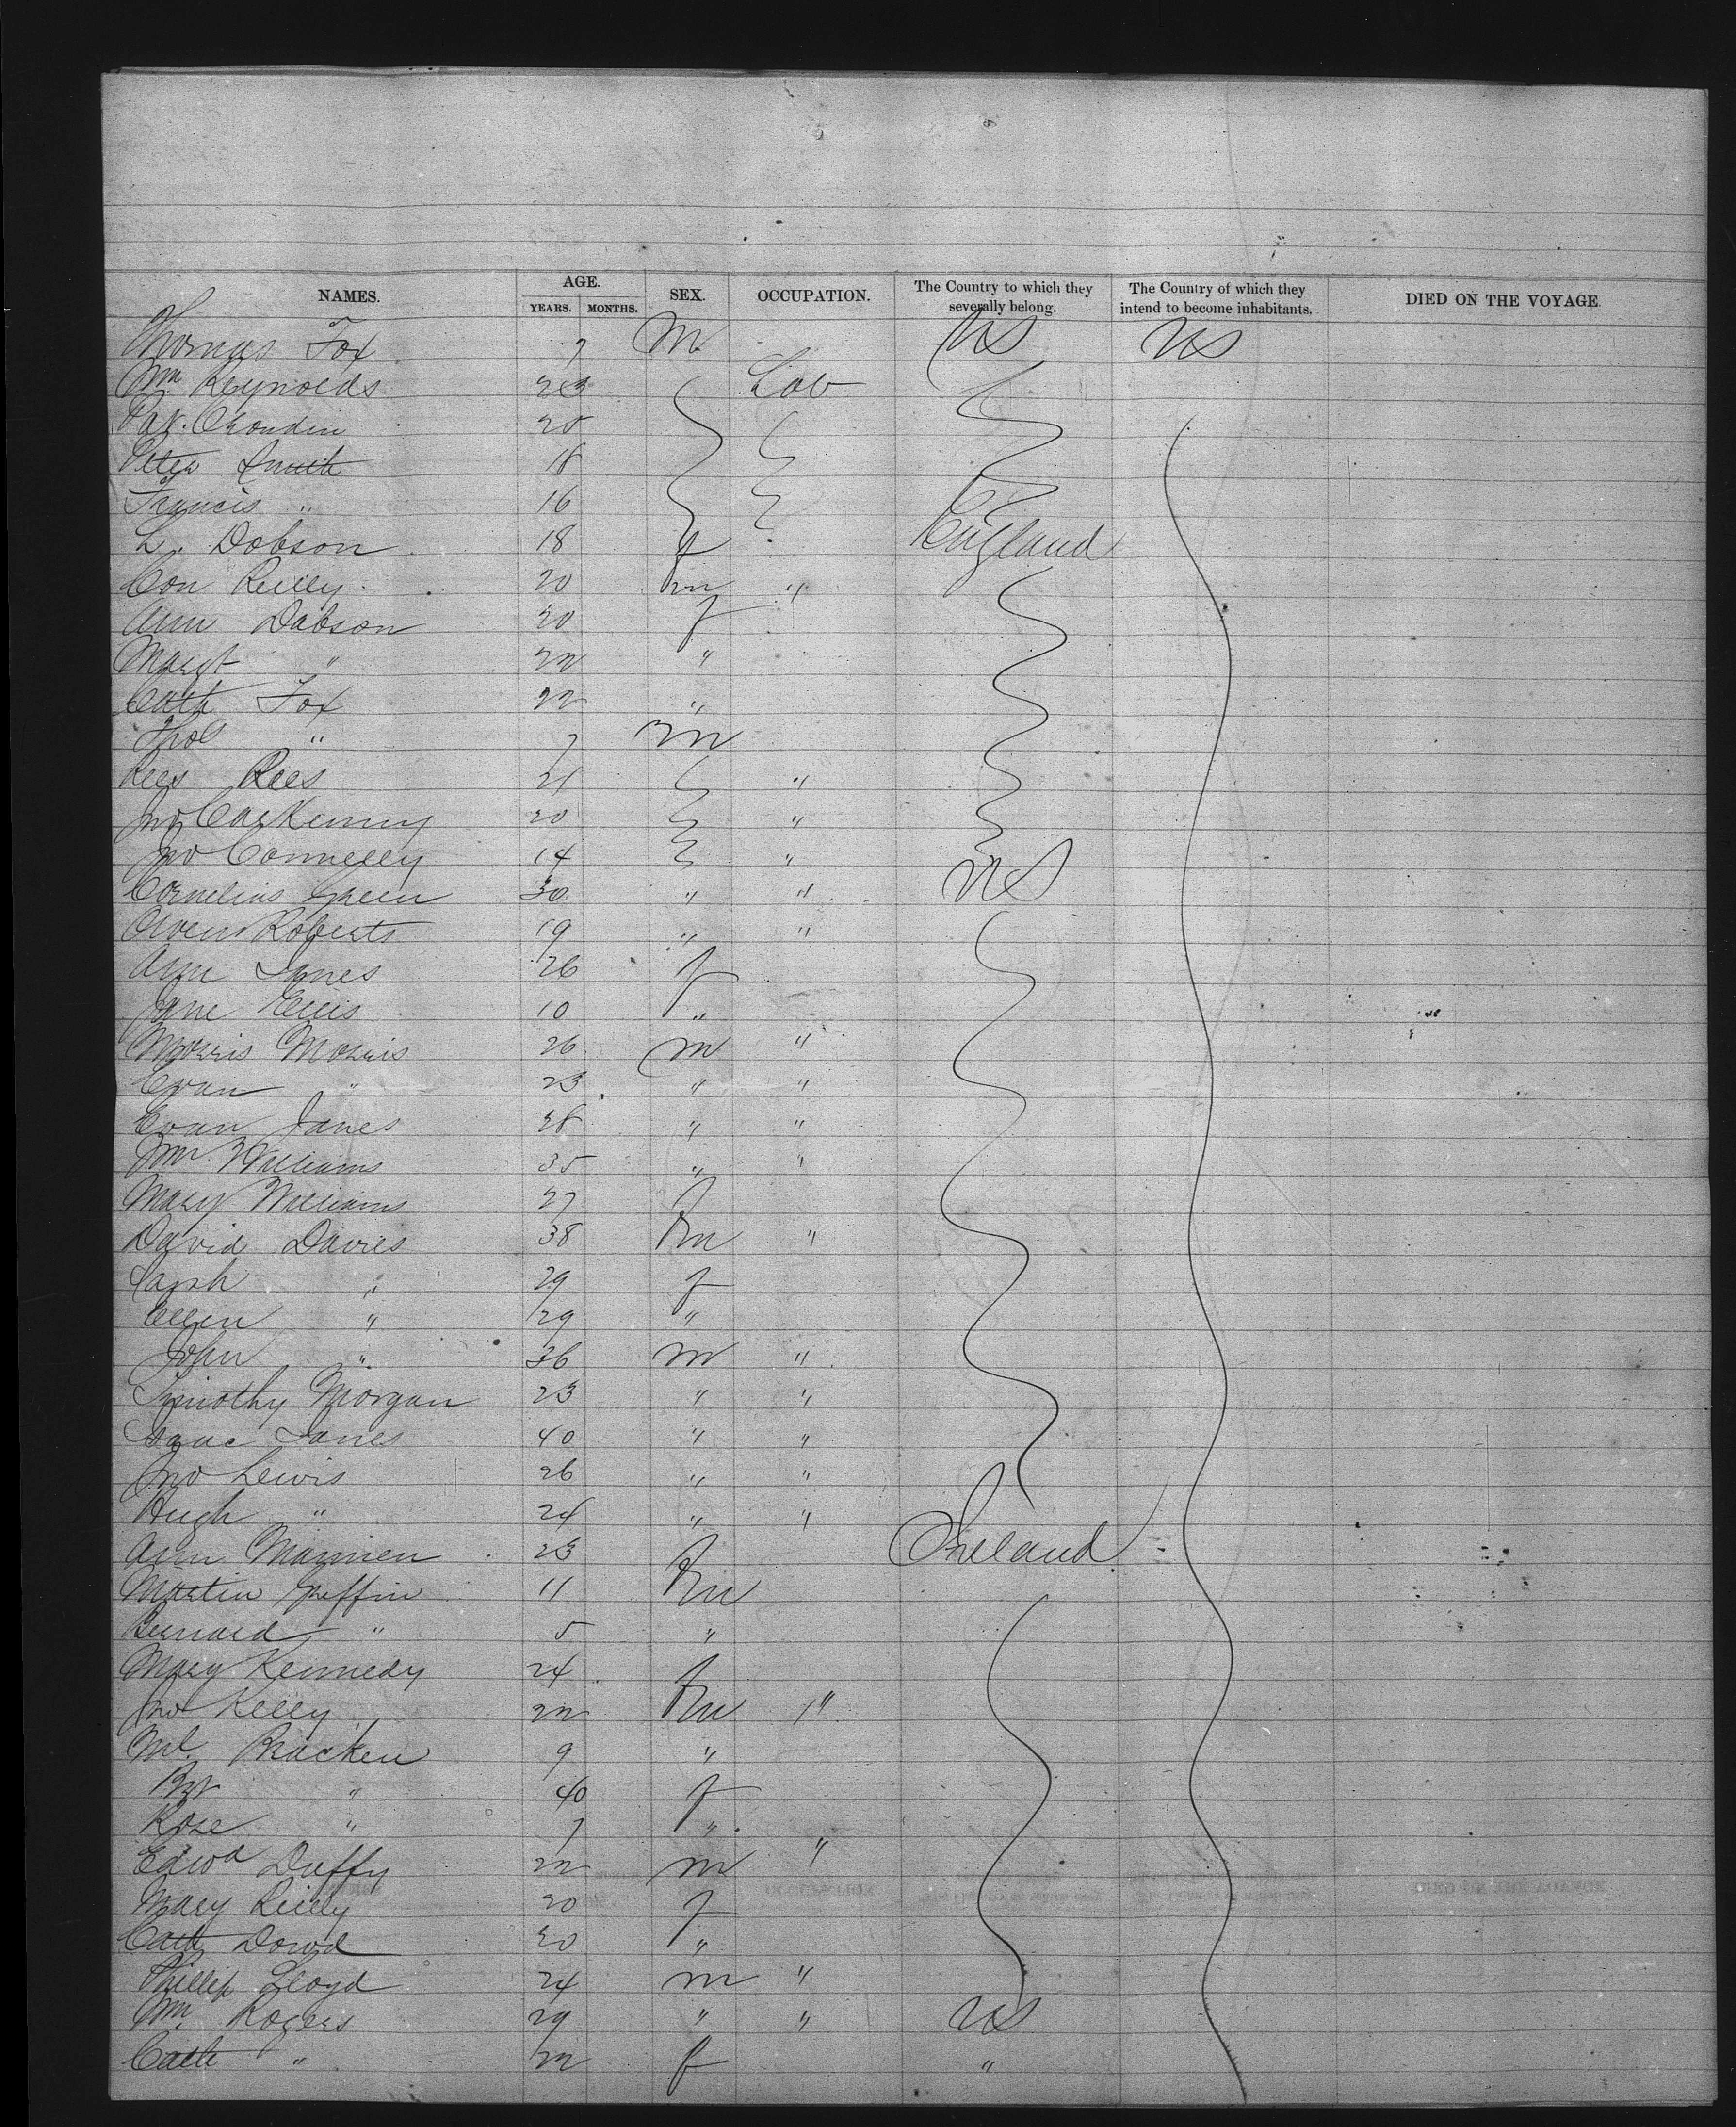 NAMES. AGE. YEARS. MONTHS. SEX. OCCUPATION. The Country to which they severally belong. The Country of which they intend to become inhabitants. DIED ON THE VOYAGE.
Thomas Fox 7 M US US
Wm Reynolds 23 Lab
Pat. 20
Peter Smith 18
Francis " 16
L. Dobson 18 f England
Con Reilly 20 m "
Ann Dobson 20 f
Margt " 22 "
Cath Fox 22 "
Thos " 7 m
Rees Rees 21 "
Jno 20 "
Jno Connelly 14 "
Cornelius Green 30 " " US
Owen Roberts 19 " "
Ann Jones 26 f
Jane Ellis 10 "
Morris Morris 26 m "
Evan " 23 " "
Evan Jones 28 " "
Wm Williams 35 " "
Mary Williams 27 f
David Davies 38 m "
Sarah " 29 f
Ellen " 29 "
John " 36 m "
Timothy Morgan 23 " "
Isaac Jones 40 " "
Jno Lewis 26 " "
Hugh " 24 " "
Ann Mannien 23 f Ireland
Martin Griffin 11 m
Bernard " 5 "
Mary Kennedy 24 f
Jno Kelly 22 m "
Ml. Bracken 9 "
Bgt " 40 f
Rose " 7 "
Edwd Duffy 22 m "
Mary Reilly 20 f
Cath Dowd 20 "
Phillip Lloyd 24 m "
Wm Rogers 29 " " US
Cath " 22 f "